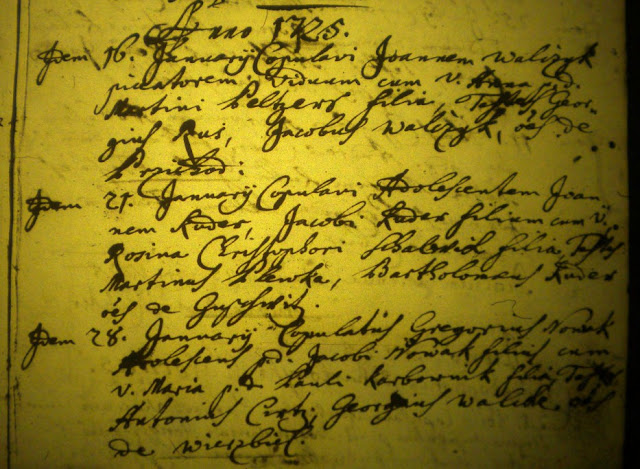 Anno 1725.
Idem 16. January Copulavi Joannem Walczyk
piscatorem Viduum cum V. Anna p.d.
Martini Peltzers filia, Testes Geor-
gius Kus, Jacobus Walczyk, oēs de
Idem 21. January Copulavi Adolescentem Joan-
nem Kuder, Jacobi Kuder filium cum V.
Rosina Christophori filia, Testes
Martinus Plewka, Bartholomaeus Kuder
oēs de
Idem 28. January Copulatus Gregorius Nowak
Adolescens p.d. Jacobi Nowak filius cum
V. Maria p.d. Pauli Karbownik filia, Testes
Antonius Georgius oēs
de